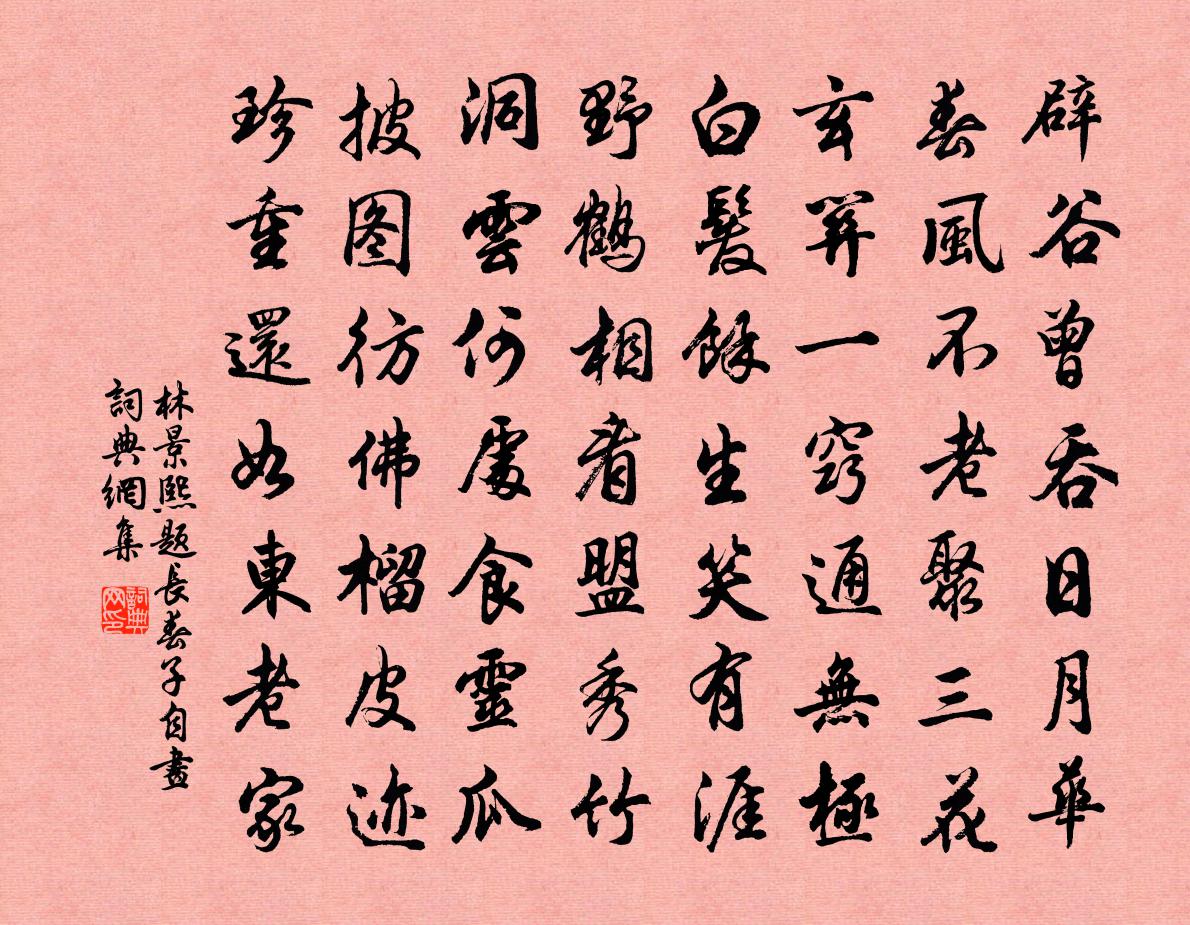 辟谷曾吞日月華
春風不老聚三花
玄關一竅通無極
白髮餘生笑有涯
野鶴相看盟秀竹
洞雲何處食靈瓜
披图彷佛榴皮迹
珍重還如東老家
林景熙题長春子自畫
詞典網集
詞典网印